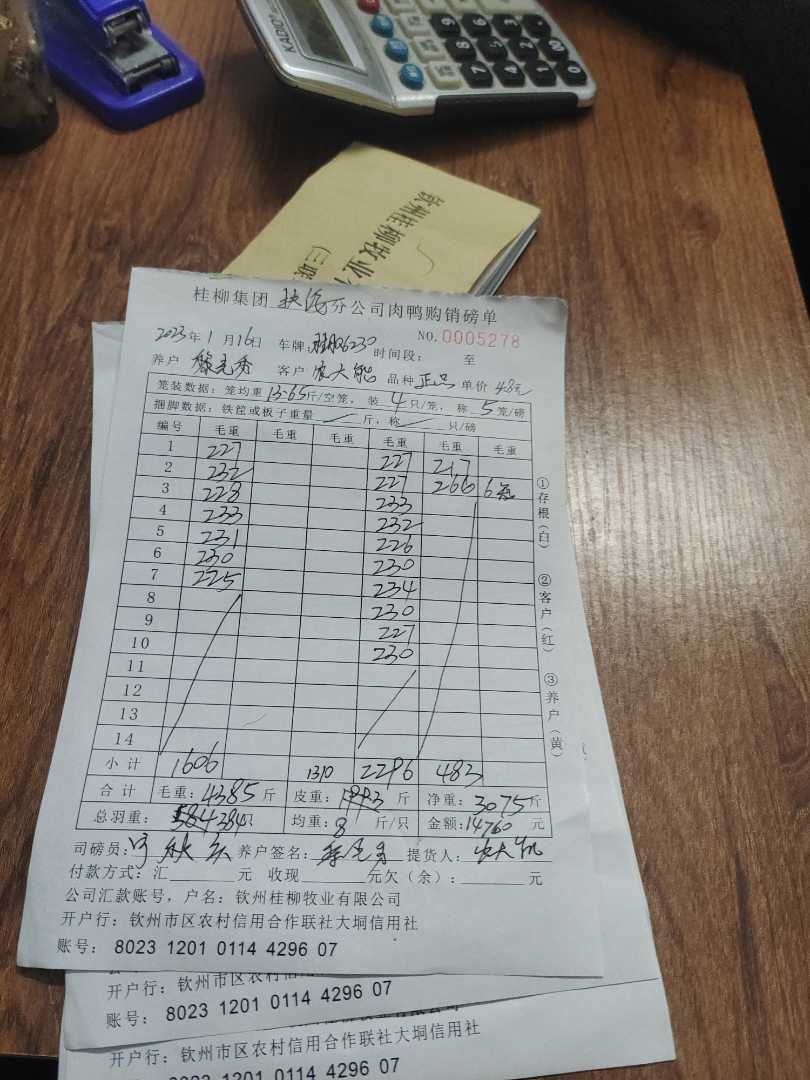 KADIO
钦州桂柳牧业
(三联
桂柳集团 扶绥 分公司肉鸭购销磅单
2023年 1月 16日 车牌: 时间段: 至 NO.0005278
养户 客户 农大 品种 正品 单价 4.8元
笼装数据: 笼均重 13.65斤/空笼, 装 4 只/笼, 称 5 笼/磅
捆脚数据: 铁筐或板子重量 斤, 称 只/磅
编号 毛重 毛重 毛重 毛重 毛重 毛重
1 227 227 217
2 232 227 266 6笼
3 228 233
4 233 232
5 231 226
6 230 230
7 225 234
8 230
9 227
10 230
11
12
13
14
小计 1606 1310 2296 483
合计 毛重: 4385 斤 皮重: 斤 净重: 3075 斤
总羽重: 384只 均重: 8 斤/只 金额: 14760 元
司磅员: 养户签名: 提货人: 农大
付款方式: 汇 元 收现 元欠(余): 元
公司汇款账号, 户名: 钦州桂柳牧业有限公司
开户行: 钦州市区农村信用合作联社大垌信用社
账号: 8023 1201 0114 4296 07
①存根(白) ②客户(红) ③养户(黄)
开户行: 钦州市区农村信用合作联社大垌信用社
账号: 8023 1201 0114 4296 07
开户行: 钦州市区农村信用合作联社大垌信用社
8023 1201 0114 4296 07